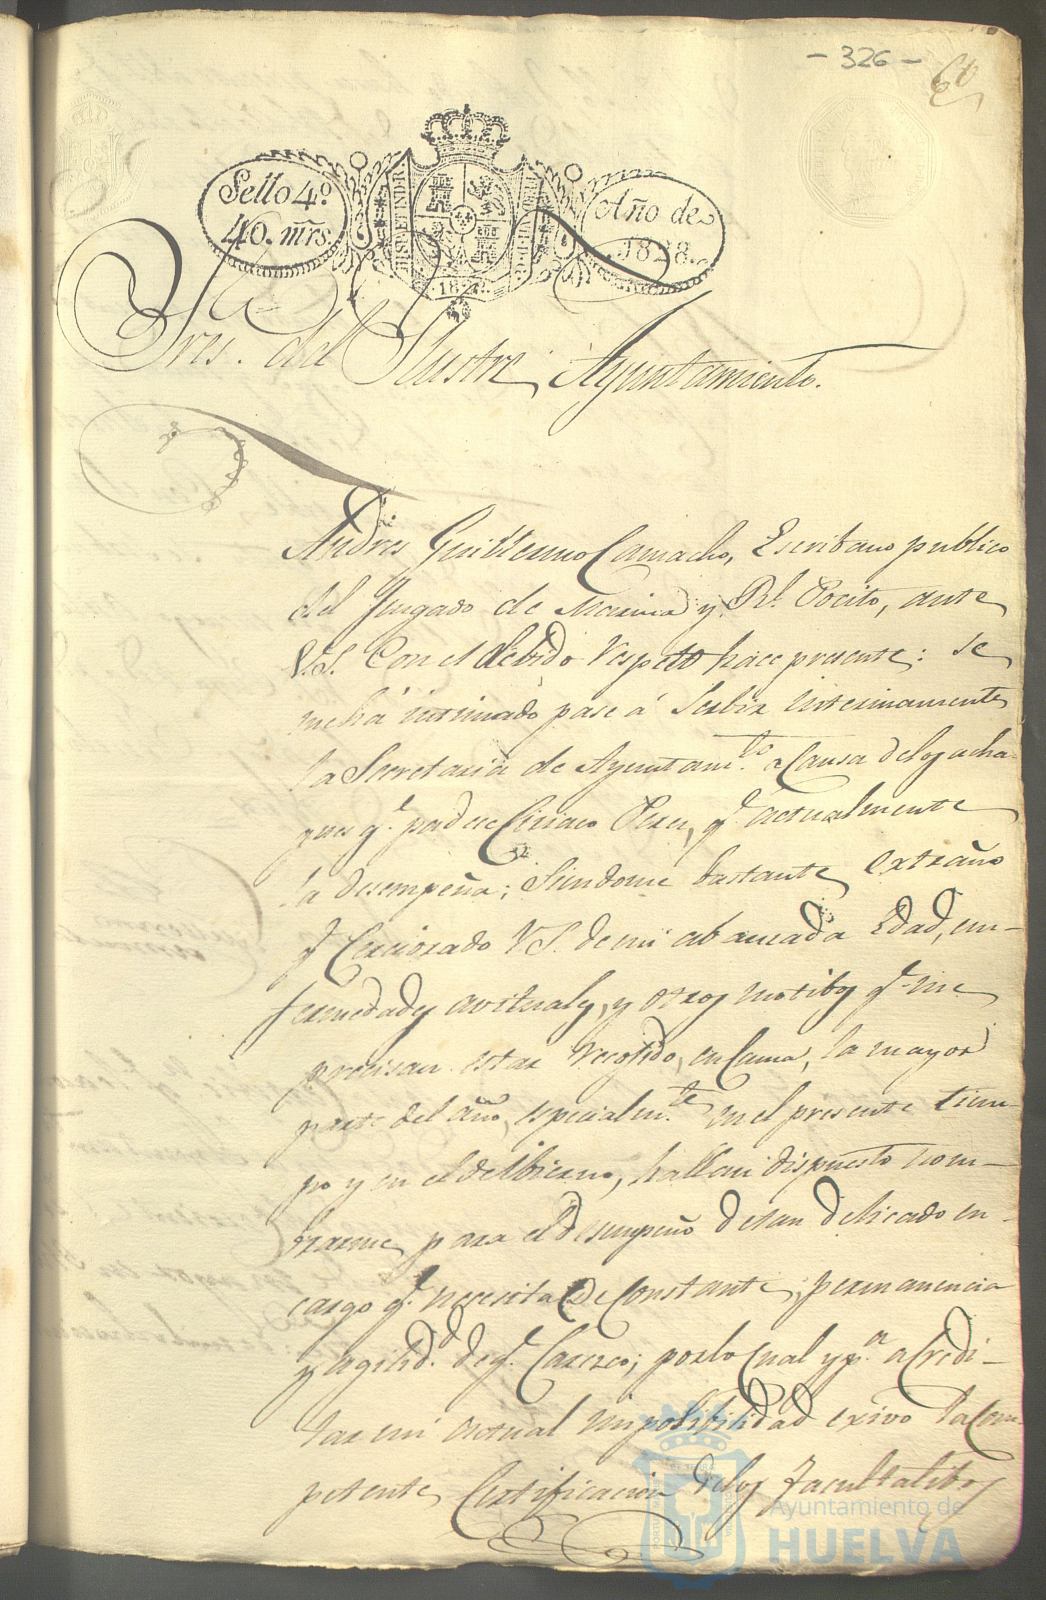 - 326 -
60
Sello 4º
40. mrs.
HISP. ET IND. R
1828.
Año de
1828.
Sres. del Ilustre Ayuntamiento.
Dn.
Andres Guillermo Camacho, Escribano publico
del Jusgado de Marina y Rl. Pocito, ante
V.S. Con el debido respeto hace presente: se
me há intimado pase á Serbir interinamente
la Secretaria de Ayuntamto. a Causa delos acha-
ques q.e padece Ciriaco Peres, q.e actualmente
la desempeña; Siendome bastante extraño
q.e Cerciorado V.S. de mi abansada Edad, en-
fermedades avituales, y otros motibos q.e me
precisan estar recogido, en Cama, la mayor
parte del año, especialmte. en el presente tiem-
po y en el del Ibierno, hallan dispuesto nom-
brarme, para el desempeño de tan delicado en-
cargo q.e necesita de Constante, permanencia
y agilidd. de q.e Caresco; por lo Cual y pa. acredi-
tar mi actual imposibilidad exivo la Com-
petente, Certificacion delos Facultatibos
Ayuntamiento de
HUELVA